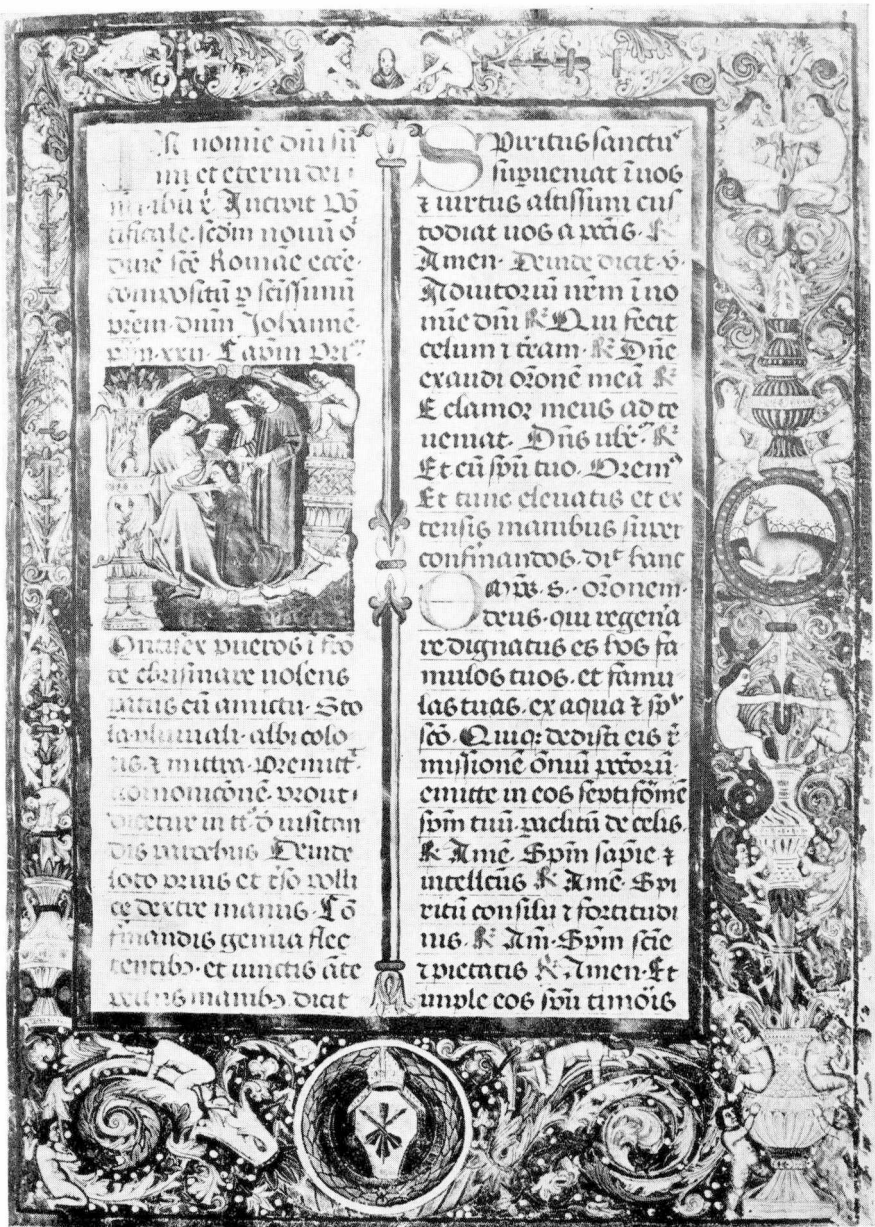 nomie dm su
mi et eterm dei
Incipit po
tificale scdm nouu o
dine sce Romae ecce
compositu p scissimu
prem dnm Johanne
xxii Capm pri
Ontifex pueros i fro
te chrismare uolens
patus cu amictu Sto
la pluuiali albi colo
ris ⁊ mittra premitt
amonicone prout
dicetur in tt d uisitan
dis parochiis Deinde
loto prius et tso polli
ce dextre manus Co
firmandis genua flec
tentibꝫ et iunctis ate
manibꝫ dicit
Spiritus sanctuꝰ
supueniat i uos
⁊ uirtus altissimi cus
todiat uos a pctis ℟
Amen Deinde dicit v
Adiutoriu nrm i no
mie dni ℟ Qui fecit
celum ⁊ tram ℟ Dne
exaudi orone mea ℟
E clamor meus ad te
ueniat Dns ube ℟
Et cu spu tuo Oremꝰ
Et tunc eleuatis et ex
tensis manibus super
confirmandos dic hanc
Omps s oronem
deus qui regena
re dignatus es hos fa
mulos tuos et famu
las tuas ex aqua ⁊ spu
sco Quiqꝫ dedisti eis r
missione oniu pctoru
emitte in eos septiforme
spm tuu paclitu de celis
℟ Ame Spm sapie ⁊
intellctus ℟ Ame Spi
ritu consilii ⁊ fortitudi
nis ℟ Am Spm scie
⁊ pietatis ℟ Amen Et
imple eos spu timois